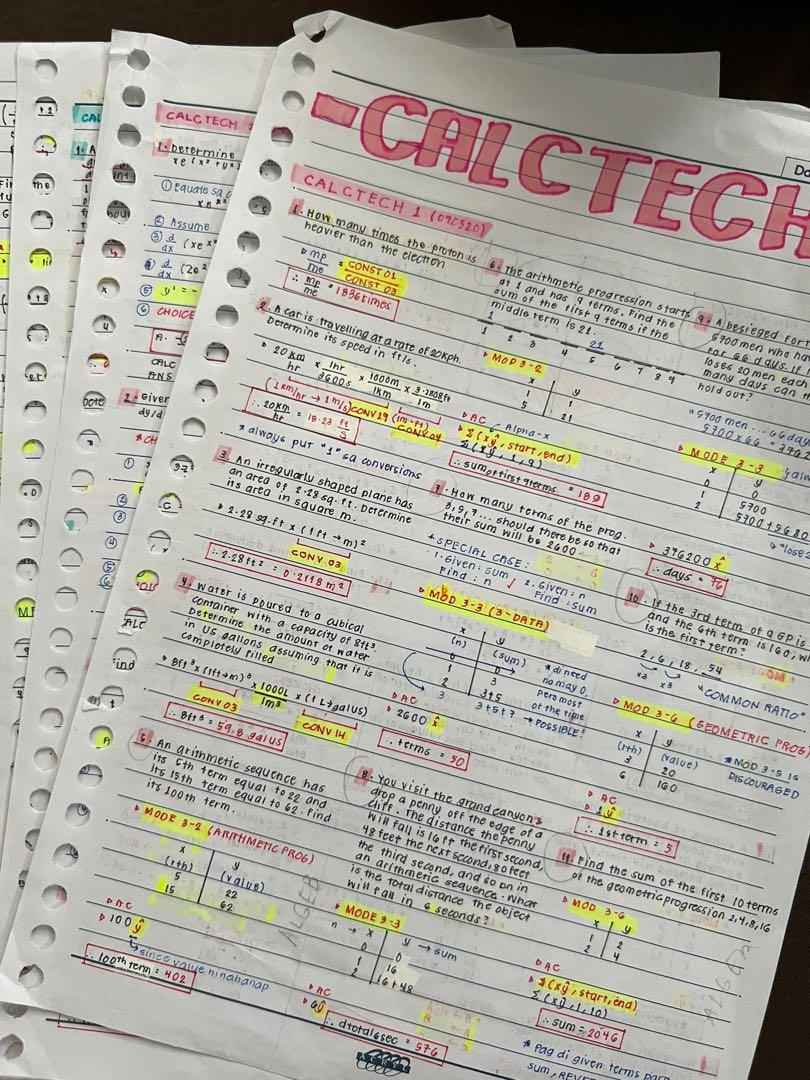 CALCTECH
CALCTECH 1 (090520)
1. How many times the proton is
heavier than the electron
mp
me
= CONST 01
CONST 03
∴ mp
me
= 1836 times
2. A car is travelling at a rate of 20kph.
Determine its speed in ft/s.
20 km
hr
x 1hr
3600s
x 1000m
1km
x 3.2808ft
1m
(1 km/hr → 1 m/s) CONV 19
(1m→ft)
CONV 04
∴ 20km
hr
= 18.23 ft
s
* always put "1" sa conversions
3. An irregularly shaped plane has
an area of 2.28 sq. ft. Determine
its area in square m.
2.28 sq.ft x (1ft→m)²
CONV 03
∴ 2.28 ft² = 0.2118 m²
4. Water is poured to a cubical
container with a capacity of 8ft³.
Determine the amount of water
in US gallons assuming that it is
completely filled
8ft³ x (1ft→m)³ x 1000L
1m³
x (1L→galus)
CONV 03
CONV 14
∴ 8ft³ = 59.8 galus
5. An arithmetic sequence has
its 5th term equal to 22 and
its 15th term equal to 62. Find
its 100th term.
MODE 3-2 (ARITHMETIC PROG)
x y
(nth) (value)
5 22
15 62
AC
100ŷ
since value hinahanap
∴ 100th term = 402
6. The arithmetic progression starts
at 1 and has 9 terms. Find the
sum of the first 9 terms if the
middle term is 21.
1 21
1 2 3 4 5 6 7 8 9
MOD 3-2
x y
1 1
5 21
AC Alpha-x
Σ(xŷ, start, end)
Σ(xŷ, 1, 9)
∴ sum of first 9 terms = 189
7. How many terms of the prog.
3, 5, 7... should there be so that
their sum will be 2600
* SPECIAL CASE:
1. Given: sum
Find: n
2. Given: n
Find: sum
MOD 3-3 (3-DATA)
x y
(n) (sum)
0 0
1 3
2 3+5
3 3+5+7 → POSSIBLE!
* di need
no may 0,
pero most
of the time
AC
2600 x̂
∴ terms = 50
8. You visit the grand canyon &
drop a penny off the edge of a
cliff. The distance the penny
will fall is 16 ft the first second,
48 feet the next second, 80 feet
the third second, and so on in
an arithmetic sequence. What
is the total distance the object
will fall in 6 seconds?
MODE 3-3
n → x y → sum
0 0
1 16
2 16+48
AC
6ŷ
∴ dtotal6sec = 576
9. A besieged fort
5700 men who ha
for 66 days. If
loses 20 men each
many days can th
hold out?
5700 men... 66 day
5700 x 66 = 3762
MODE 3-3
x y
0 0
1 5700
2 5700+5680
376200 x̂
∴ days = 76
10. If the 3rd term of a GP is
and the 6th term is 160, w
is the first term?
2, 6, 18, 54
x3 x3
"COMMON RATIO"
MOD 3-6 (GEOMETRIC PROG)
x y
(nth) (value)
3 20
6 160
* MOD 3-5 is
DISCOURAGED
AC
1ŷ
∴ 1st term = 5
11. Find the sum of the first 10 terms
of the geometric progression 2,4,8,16
MOD 3-6
x y
1 2
2 4
AC
Σ(xŷ, start, end)
Σ(xŷ, 1, 10)
∴ sum = 2046
* Pag di given terms para
sum, REVE
CALCTECH
1. Determine
xe^(x²+y²)
① Equate sa 0
② Assume
③ d
dx
(xe^x
④ d
dx
(2e²
⑤ y' = -
⑥ CHOICE
A.
CALC
ANS
2. Given
dy/d